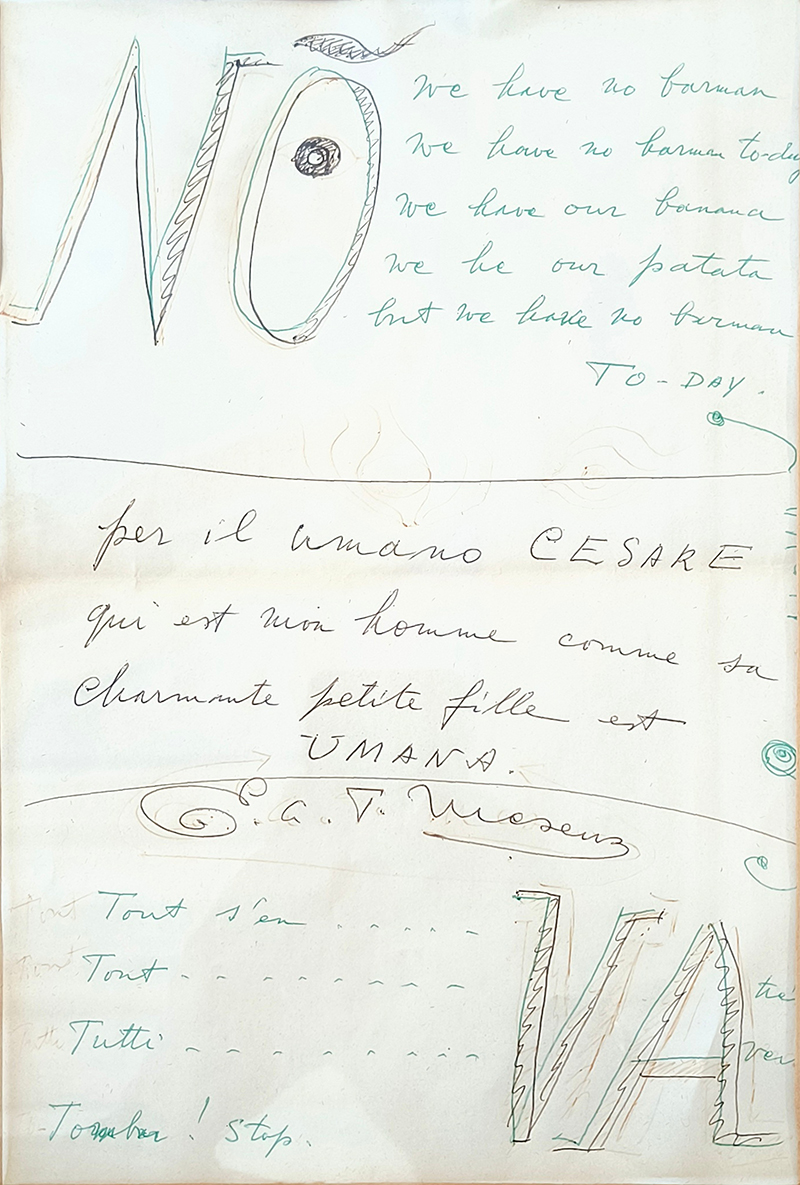 NO
We have no barman
We have no barman to-day
We have our banana
we he our patata
but we have no barman
TO-DAY.
per il umano CESARE
qui est mon homme comme sa
charmante petite fille est
UMANA.
E. G. T. Mesens
Tout s'en
Tout
Tutti
VA
Tomber ! Stop.